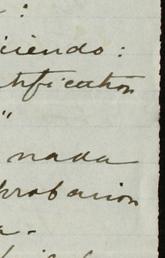 :
iciendo:
tification
"
nada
probacion
a.